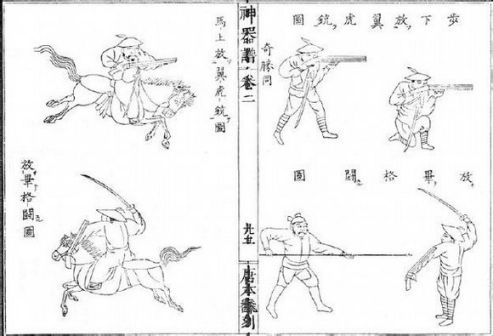 步下放翼虎銃圖
奇勝同
放畢格鬪圖
神器譜 卷二
唐本
馬上放翼虎銃圖
放畢格鬪圖